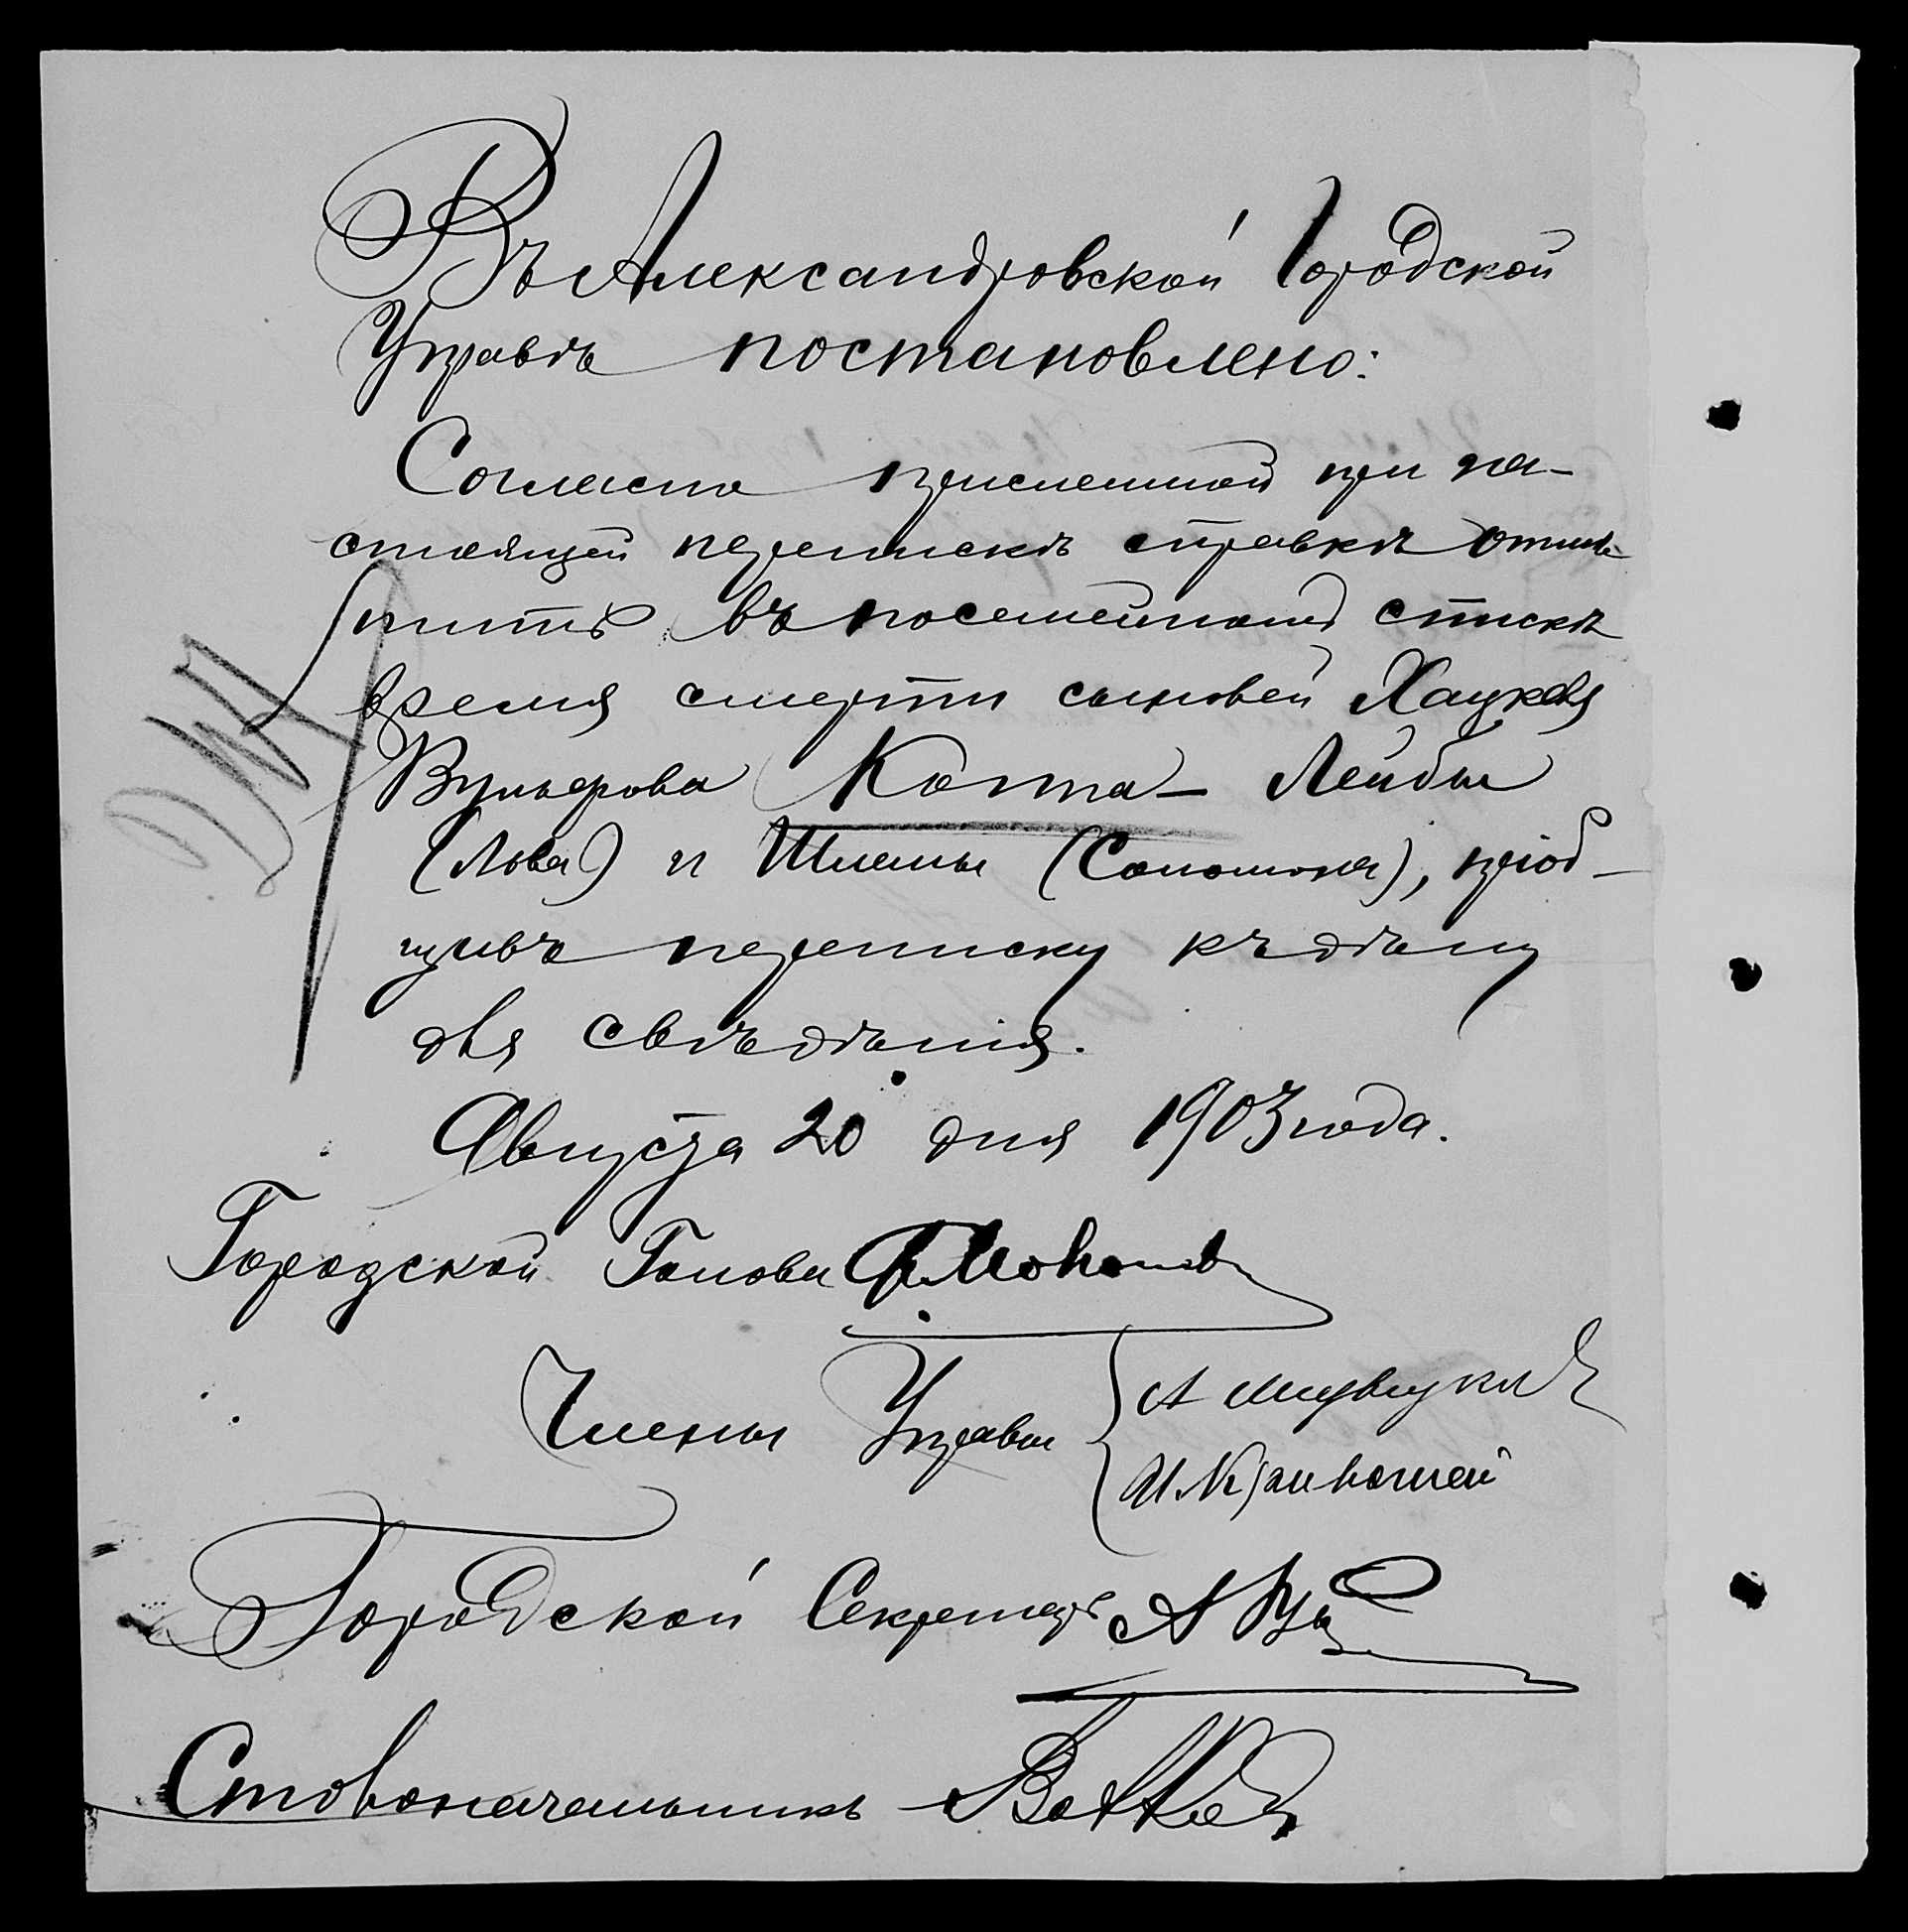 Въ Александровской Городской
Управѣ постановлено:
Согласно присланной при на-
стоящей перепискѣ справкѣ отмѣ-
тить въ посемейномъ спискѣ
время смерти сыновей Хацкеля
Вульфова Копта - Лейбы
(Льва) и Шлемы (Соломона), пріоб-
щивъ переписку къ дѣлу
для свѣдѣнія.
Августа 20 дня 1903 года.
Городской Голова
Члены Управы
И. Кривошей
Городской Секретарь
Столоначальникъ